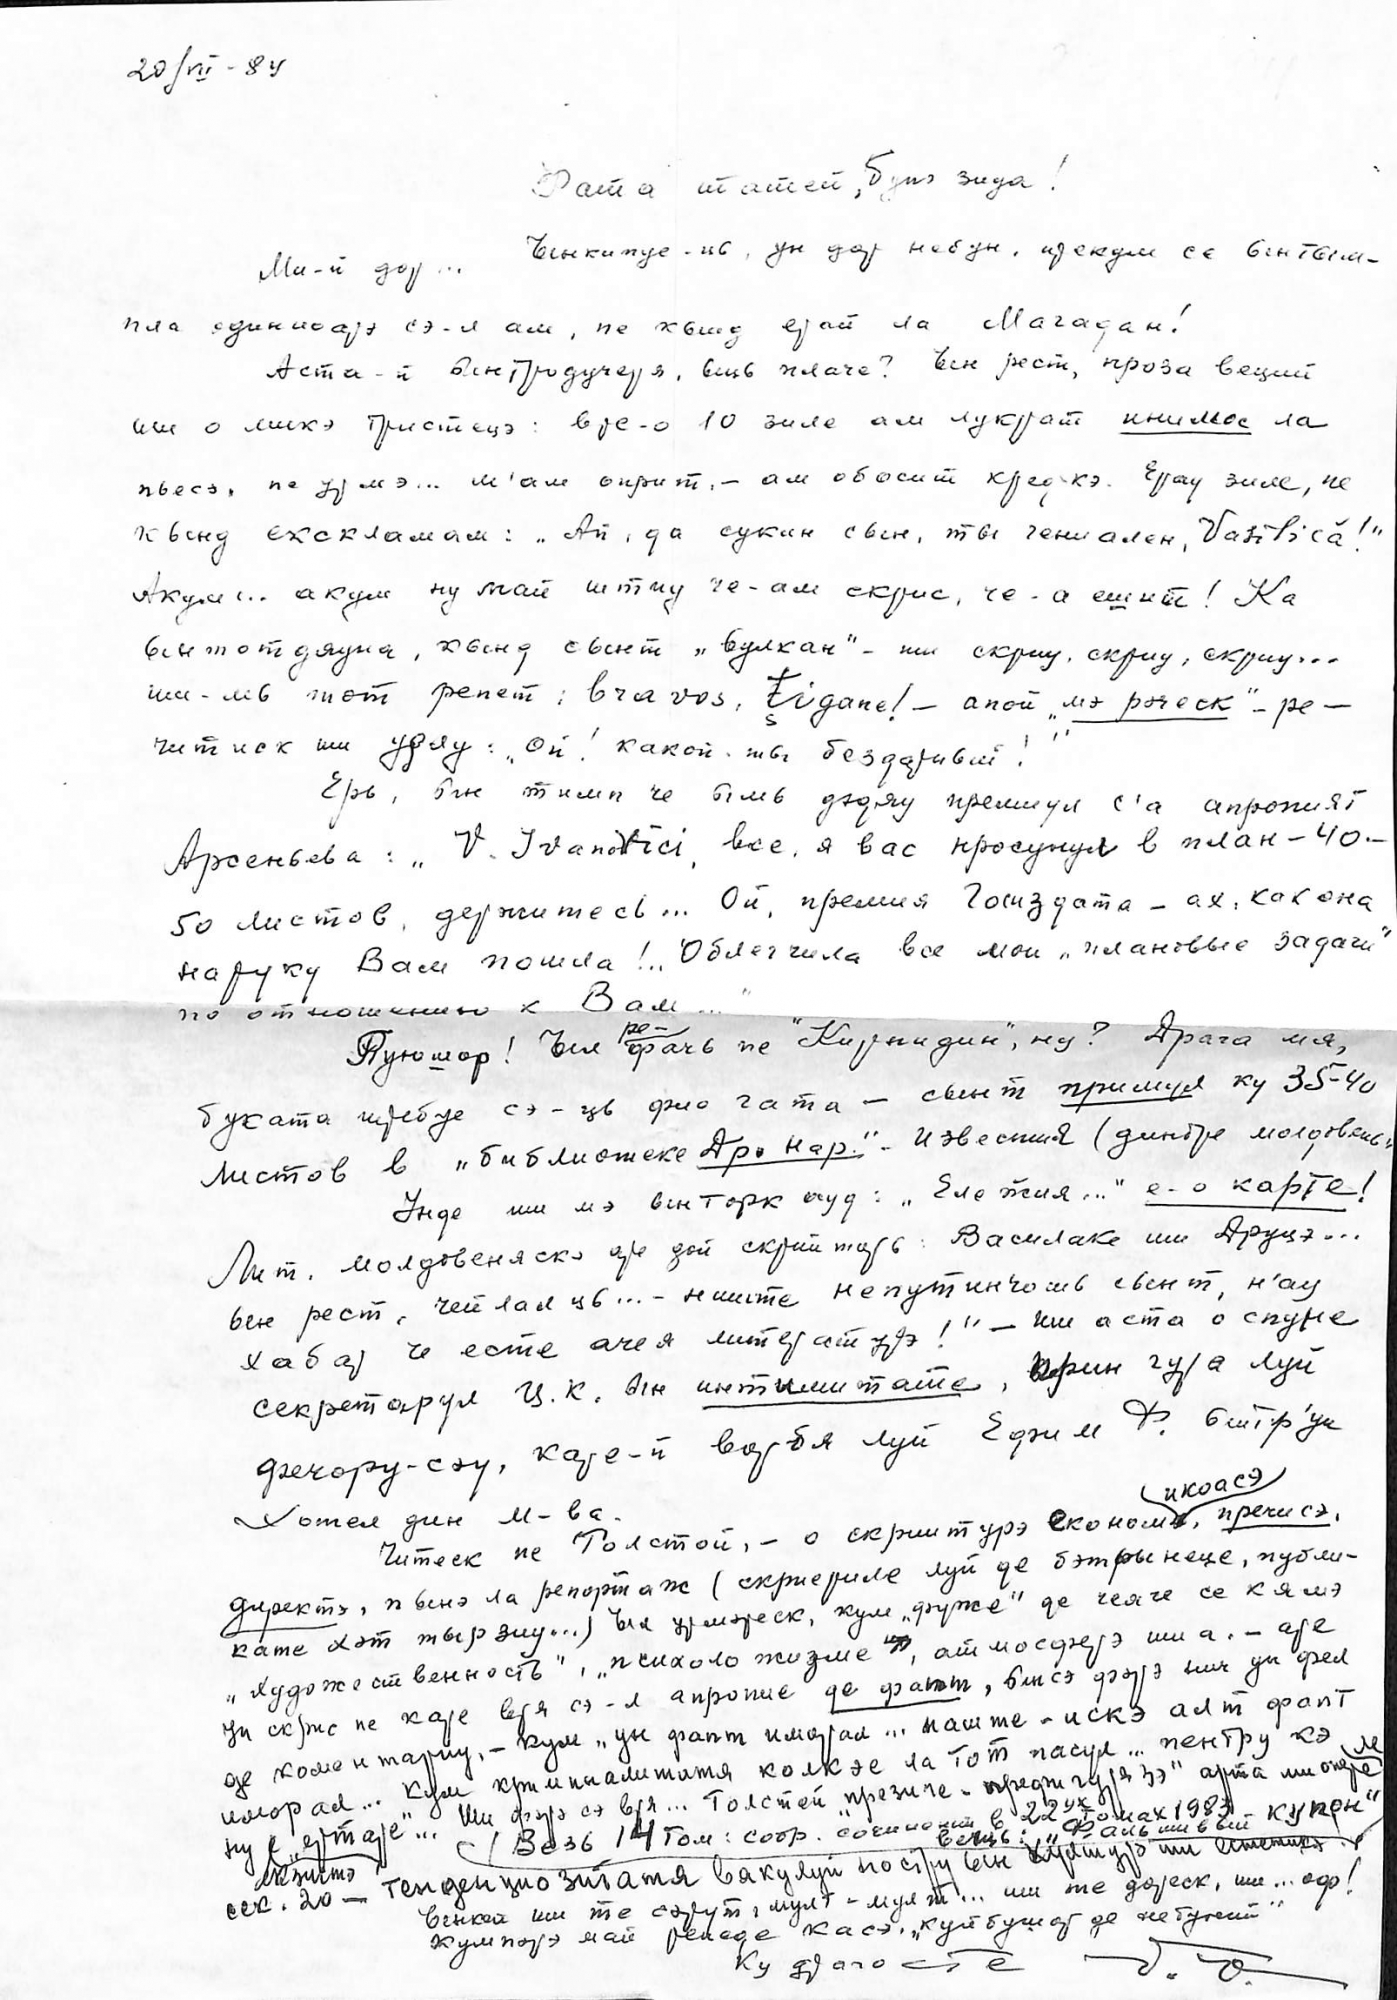 20/VII - 84
Фата татей, бунэ зиуа!
Ми-й дор... Ынкипуе-ць, ун дор небун, прекум се ынтым-
пла одиниоарэ сэ-л ам, пе кынд ерай ла Магадан!
Аста-й интродучеря, ыць плаче? Ын рест, проза веций
ши о микэ тристецэ: вре-о 10 зиле ам лукрат инимос ла
пьесэ, пе урмэ... м'ам оприт, - ам обосит кред кэ. Ерау зиле, пе
кынд екскламам: „Ай, да сукин сын, ты гениален, Vasilică!"
Акум... акум ну май штиу че-ам скрис, че-а ешит! Ка
ынтотдяуна, кынд сынт „вулкан" - ши скриу, скриу, скриу...
ши-мь тот репет: bravos, țigane! - апой „мэ рэческ" - ре-
читиск ши урлу: „Ой! какой ты бездарный!"
Ерь, ын тимп че ымь дэдяу премиул с'а апропият
Арсеньева: „V. Ivanovici, все, я вас просунул в план - 40-
50 листов, держитесь... Ой, премия Госиздата - ах, как она
на руку Вам пошла!.. Облегчила все мои „плановые задачи"
по отношению к Вам..."
Пуюшор! Ыл ре-фачь пе "Кирпидин", ну? Драга мя,
буката требуе сэ-ць фие гата - сынт примул ку 35-40
листов в „библиотеке Др. нар." - Известия (динтре молдовень)
Унде ши мэ ынторк ауд: „Ележия..." е-о карте!
Лит. молдовеняскэ аре дой скрииторь: Василаке ши Друцэ...
ын рест, чейлалць... - ниште непутинчошь сынт, н'ау
хабар че есте ачея литературэ!" - ши аста о спуне
секретарул Ц.К. ын интимитате, прин гура луй
фечору-сэу, каре-й ворбя луй Ефим Ф. ынтр'ун
Хотел дин М-ва.
Читеск пе Толстой, - о скриитурэ економикоасэ, пречисэ,
директэ, пынэ ла репортаж (скриериле луй де бэтрынеце, публи-
кате хэт тырзиу...) Ыл урмэреск, кум „фуже" де чеяче се кямэ
„художественность", „психоложизме", атмосферэ ш.а. - аре
ун скрис пе каре вря сэ-л апропие де фапт, ынсэ фэрэ ничь ун фел
де коментариу, - кум „ун фапт иморал... наште - искэ алт фапт
иморал... Кум криминалитатя колкэе ла тот пасул... пентру кэ
ну е „ертаре"... Ши фэрэ сэ вря... Толстой презиче - префигурязэ" арта
(Везь 14 том: собр. сочинений в 22ух томах 1983
вещь: „Фальшивый купон"
сек. 20 - тенденциозитатя вакулуй постру ын културэ ши естетикэ
Ынкей ши те сэрут, мулт-мулт... ши те дореск, ши... оф!
Кумпэрэ май репеде касэ, „куйбушор де небуний"
Ку драгосте V. V.